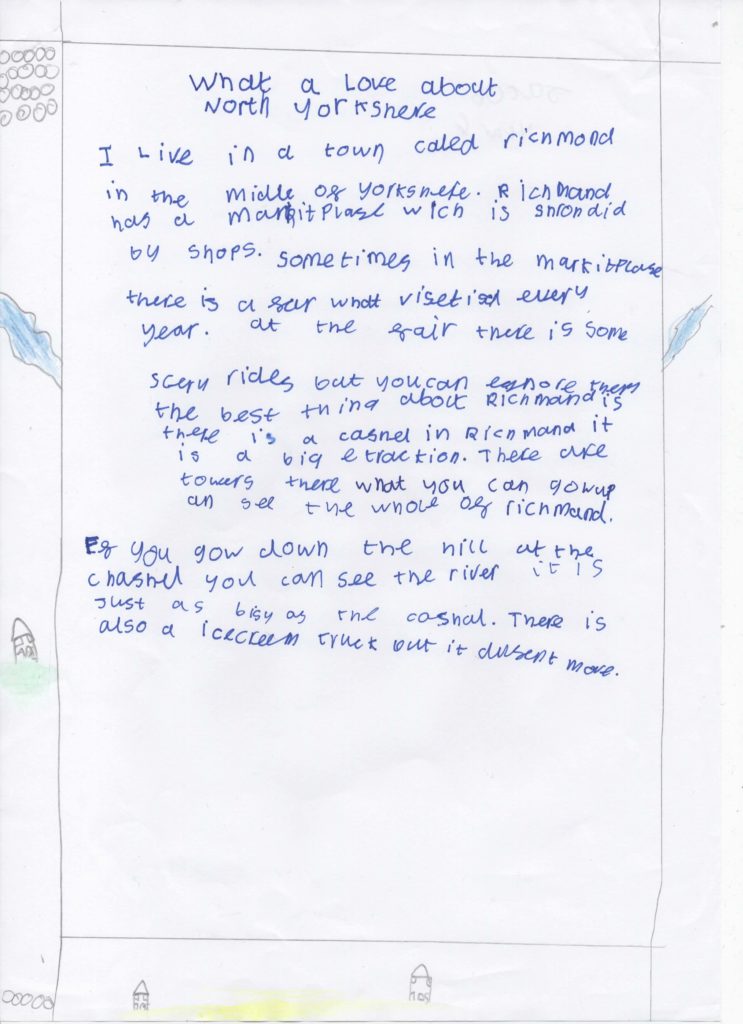 What a Love about
North Yorkshere
I Live in a town caled richmond
in the midle of yorkshere. Richmand
has a markitplase wich is shrondid
by shops. sometimes in the markitplase
there is a far what visetisd every
year. at the fair there is some
scery rides but you can egnore them
the best thing about Richmand is
there is a cashel in Richmand it
is a big etraction. There are
towers there what you can gowup
an see the whole of richmand.
Ef you gow down the hill at the
chashel you can see the river it is
Just as bisy as the cashal. There is
also a icecreem truck but it dusent move.